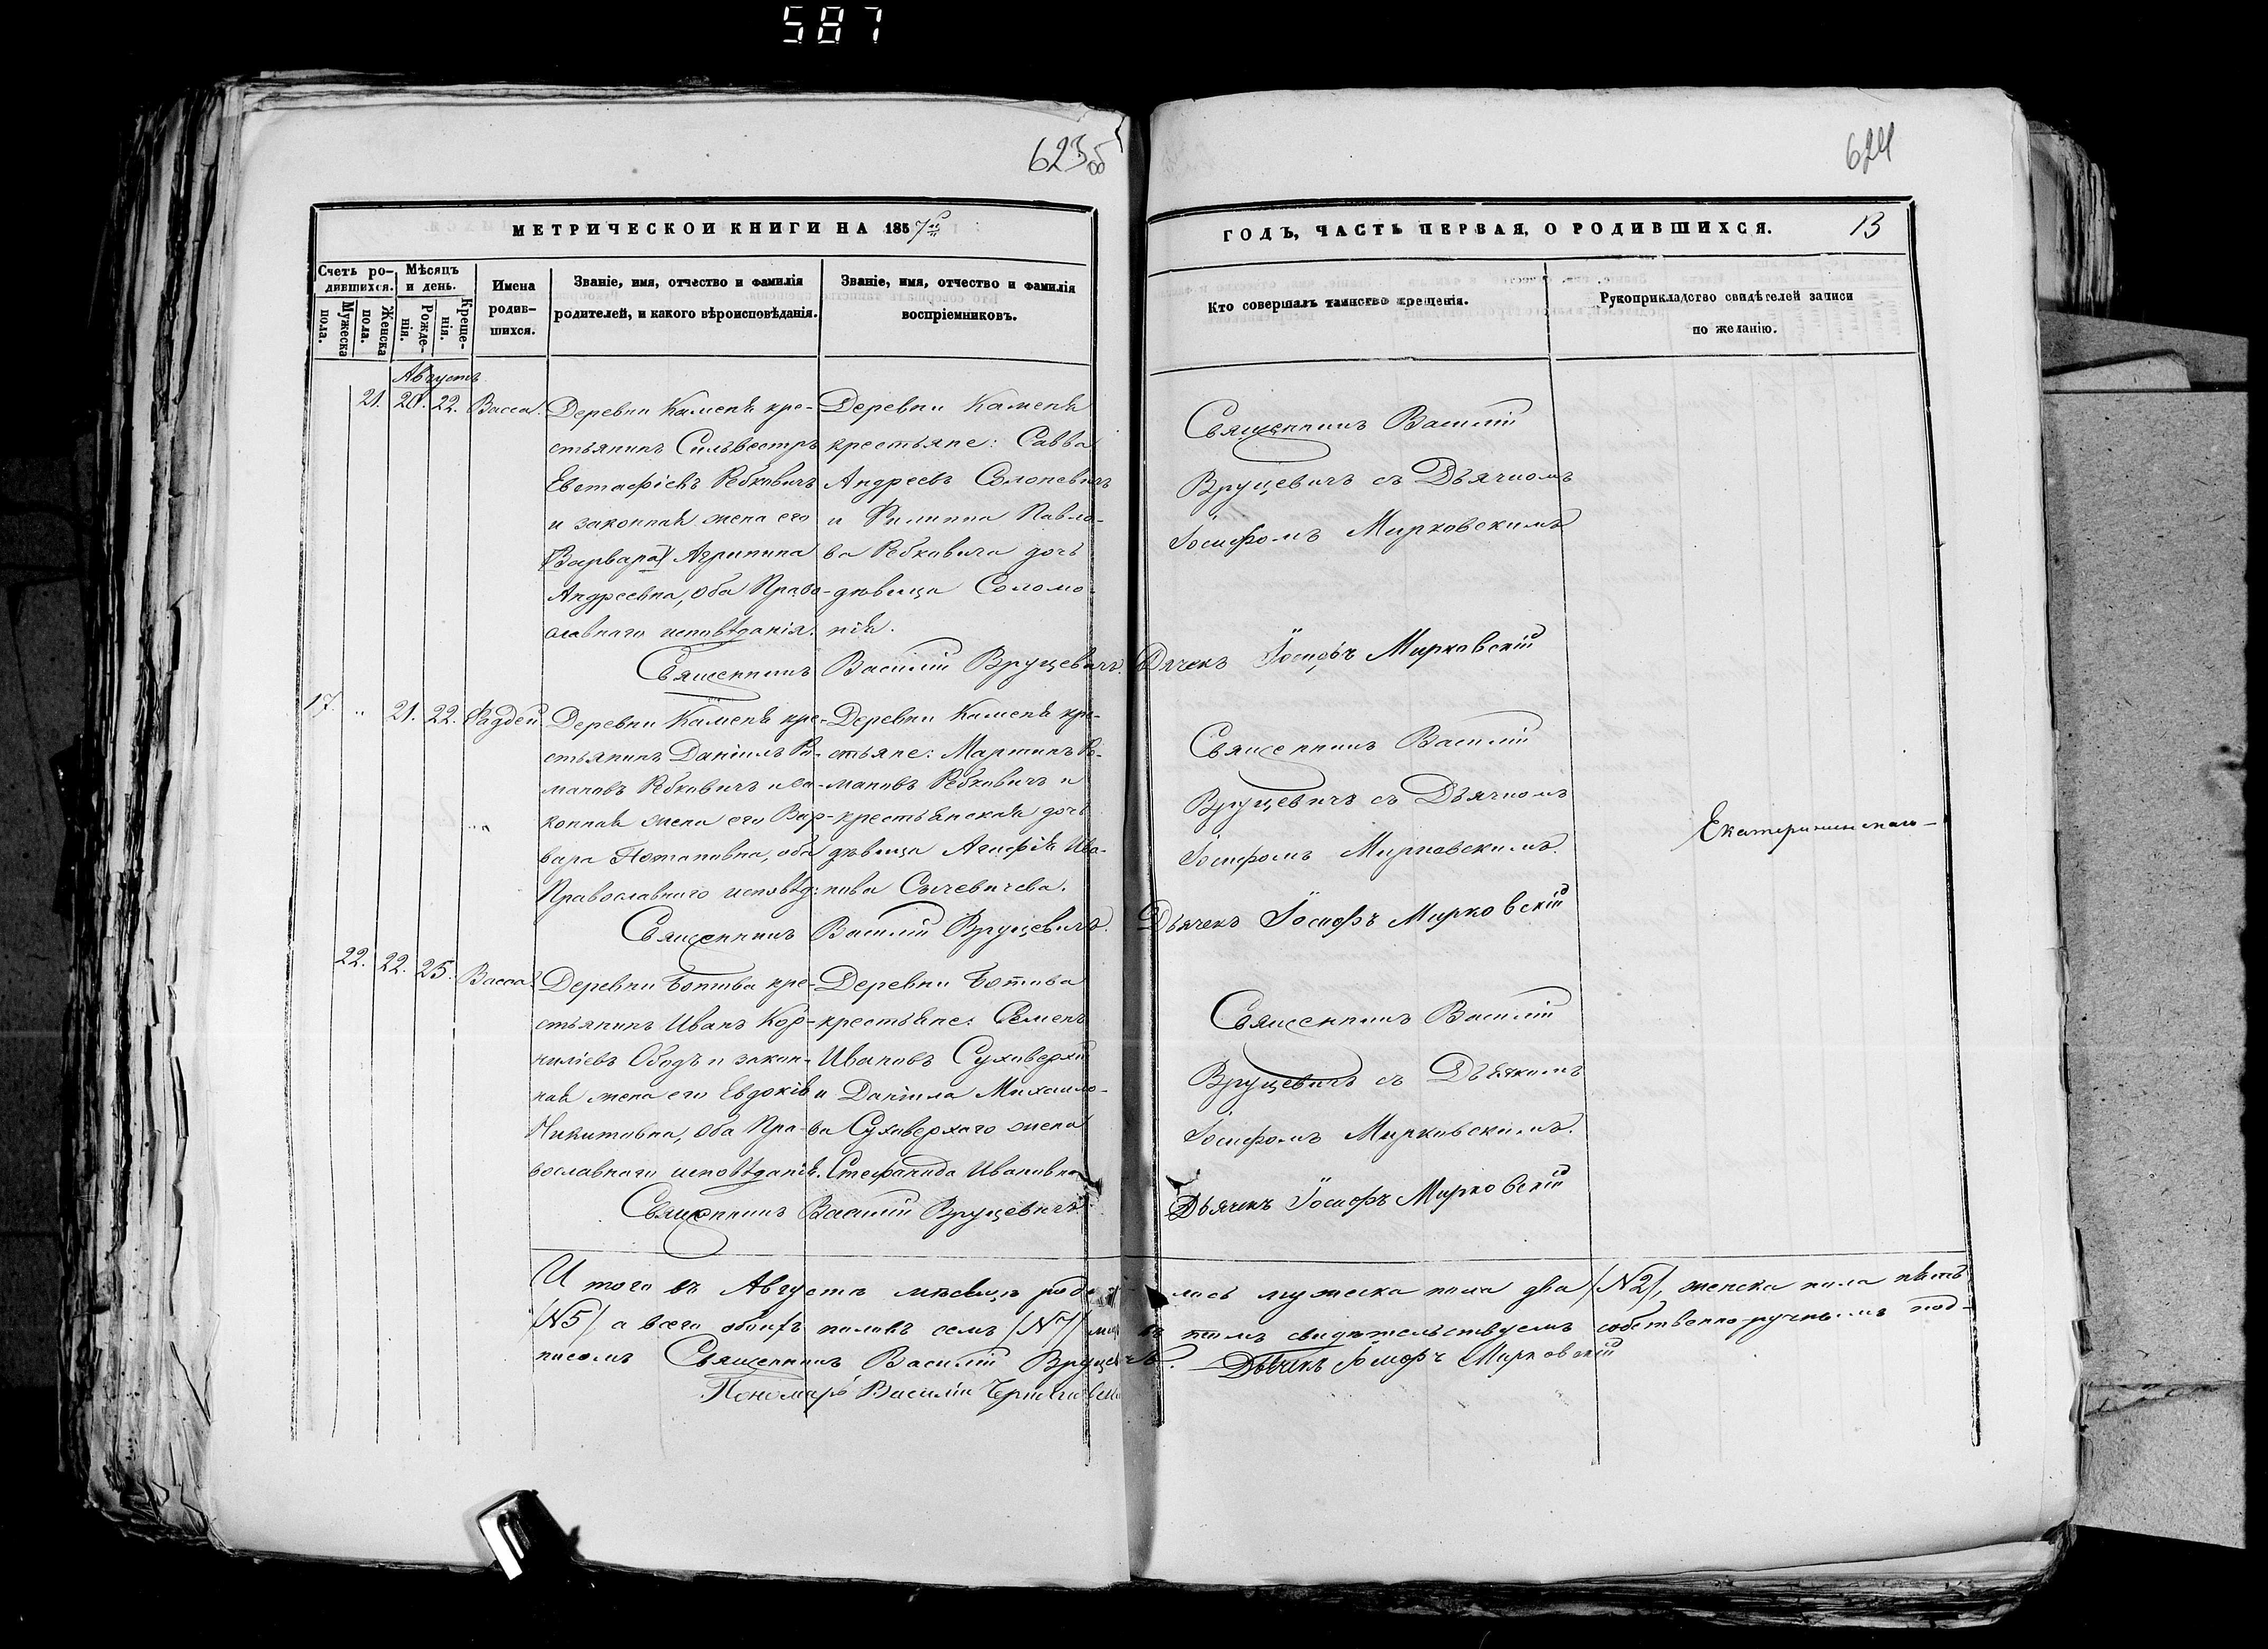 587
623об
624
МЕТРИЧЕСКОЙ КНИГИ НА 1857й
ГОДЪ, ЧАСТЬ ПЕРВАЯ, О РОДИВШИХСЯ.
13
Счетъ ро-
дившихся.
Мужеска пола.
Женска пола.
Мѣсяцъ
и день.
Рожде-
нія.
Креще-
нія.
Имена
родив-
шихся.
Званіе, имя, отчество и фамилія
родителей, и какого вѣроисповѣданія.
Званіе, имя, отчество и фамилія
воспріемниковъ.
Кто совершалъ таинство крещенія.
Рукоприкладство свидѣтелей записи
по желанію.
Августъ
21. 20. 22. Васса.
Деревни Каменя кре-
стьянинъ Сильвестръ
Евстафіевъ Ребковичъ
и законная жена его
/Варвара/ Агрипина
Андреевна, оба Право-
славнаго исповѣданія.
Деревни Каменя
крестьяне: Савва
Андреевъ
и Филиппа Павло-
ва Ребковича дочь
дѣвица Соломо-
нія.
Священникъ Василій
Вруцевичъ съ Дьячкомъ
Іосифомъ Мирковскимъ
Священникъ Василій Вруцевичъ. Дячекъ Іосифъ Мирковскій
17. " 21. 22. Фаддей.
Деревни Каменя кре-
стьянинъ Даніилъ Ро-
мановъ Ребковичъ и за-
конная жена его Вар-
вара Потаповна, оба
Православнаго исповѣд:
Деревни Каменя кре-
стьяне: Мартинъ Ро-
мановъ Ребковичъ и
крестьянская дочь
дѣвица Агафія Ива-
нова Сычевичева.
Священникъ Василій
Вруцевичъ съ Дьячкомъ
Іосифомъ Мирковскимъ.
Священникъ Василій Вруцевичъ. Дьячекъ Іосифъ Мирковскій
22. 22. 25. Васса.
Деревни Ботова кре-
стьянинъ Иванъ Кор-
нилiевъ Ободъ и закон-
ная жена его Евдокія
Никитовна, оба Пра-
вославнаго исповѣданія.
Деревни Ботова
крестьяне: Семенъ
Ивановъ Суховерхій
и Даніила Михайло-
ва Суховерхаго жена
Стефанида Ивановна
Священникъ Василій
Вруцевичъ съ Дьякомъ
Іосифомъ Мирковскимъ.
Священникъ Василій Вруцевичъ. Дьячекъ Іосифъ Мирковскій
Итого въ Августѣ мѣсяцѣ родилось мужеска пола два /N2/, женска пола пять
/N5/ а всего обоихъ половъ семъ /N7/ въ томъ свидѣтельствуемъ собственно-ручнымъ под-
писомъ Священникъ Василій Вруцевичъ. Дьячекъ Іосифъ Мирковскій
Пономарь Василій